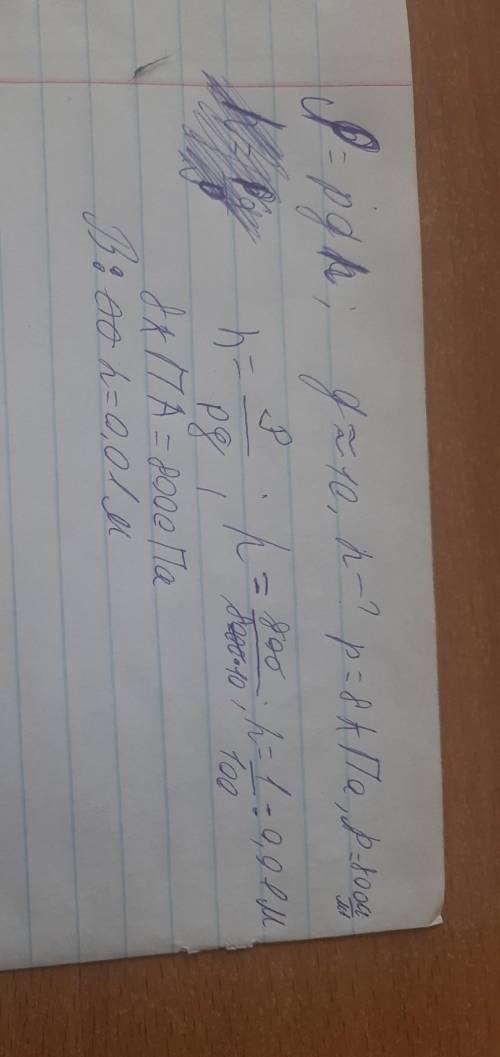 P = ρgh; g≈10, h-? p=8кПа, ρ=800
h = P/ρg, h = 800/8000·10; h = 1/100 = 0,01 м
8кПА = 8000Па
В: h=0,01 м